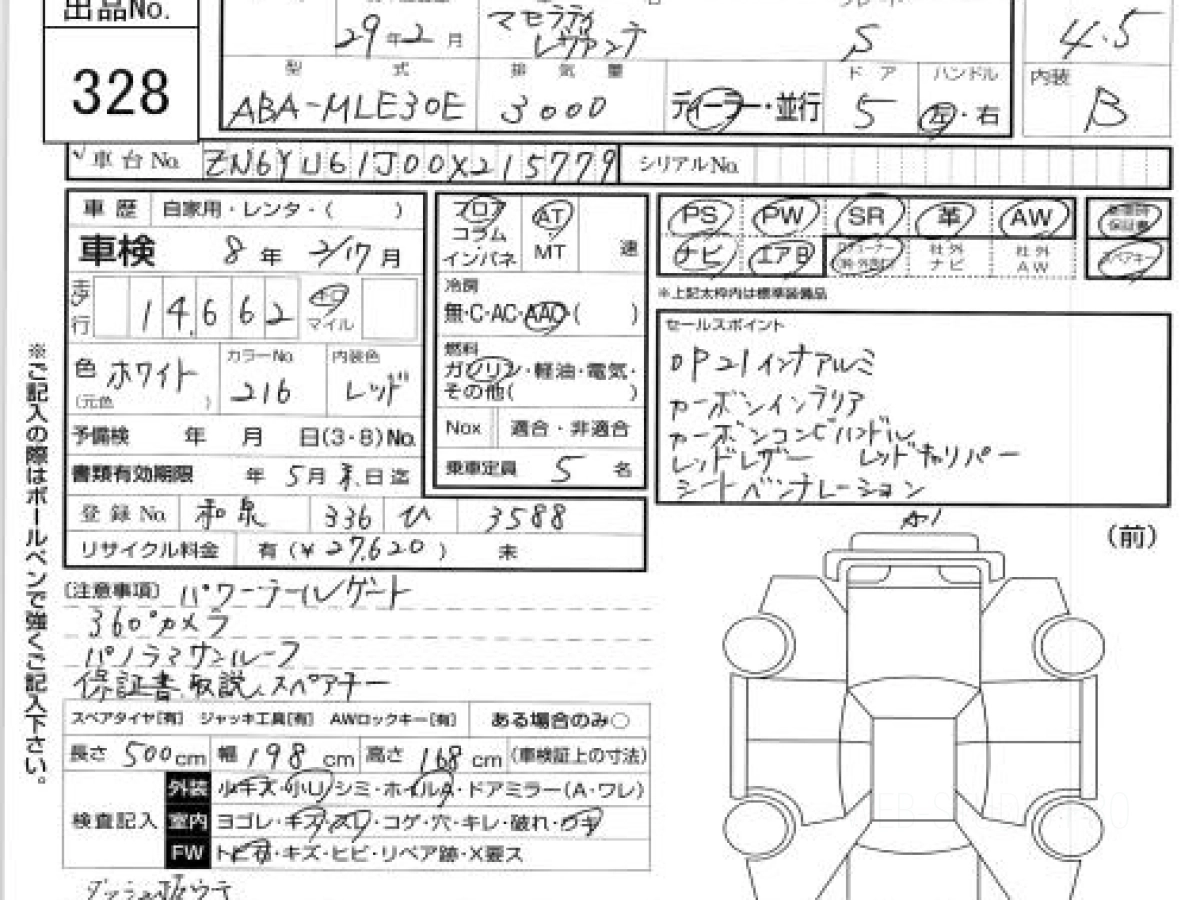 出品No.
328
29年2月
マセラティ
レヴァンテ
S
4.5
型 式
ABA-MLE30E
排 気 量
3000
ディーラー・並行
ドア
5
ハンドル
左・右
内装
B
車台No. ZN6YU61J00X215779
シリアルNo.
車歴 自家用・レンタ・( )
車検 8年 2/17月
走行 14,662 キロ マイル
色 ホワイト
(元色 )
カラーNo.
216
内装色
レッド
予備検 年 月 日(3・8)No.
書類有効期限 年 5月末日迄
登録No. 和泉 336 ひ 3588
リサイクル料金 有(¥27,620) 未
フロア
コラム
インパネ
AT
MT
速
冷房
無・C・AC・AAC・( )
燃料
ガソリン・軽油・電気・
その他( )
Nox 適合・非適合
乗車定員 5 名
PS PW SR 革 AW
ナビ エアB 社外ナビ 社外AW
保証書
スペアキー
※上記太枠内は標準装備品
セールスポイント
OP21インチアルミ
カーボンインテリア
カーボンコンビハンドル
レッドレザー レッドキャリパー
シートベンチレーション
A1
(前)
[注意事項] パワーテールゲート
360°カメラ
パノラマサンルーフ
保証書、取説、スペアキー
スペアタイヤ[有] ジャッキ工具[有] AWロックキー[有] ある場合のみ○
長さ 500cm 幅 198cm 高さ 168cm (車検証上の寸法)
検査記入
外装 小キズ・小U・シミ・ホイルA・ドアミラー(A・ワレ)
室内 ヨゴレ・キズ・スレ・コゲ・穴・キレ・破れ・ウキ
FW トビ石・キズ・ヒビ・リペア跡・X要ス
※ご記入の際はボールペンで強くご記入下さい。